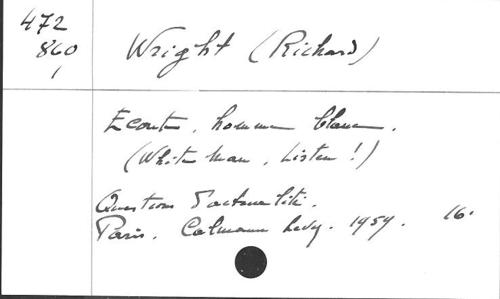 472
860
1
Wright (Richard)
Ecoute, homme blanc.
(White Man, Listen!)
Questions d'actualité.
Paris. Calmann Levy. 1959. 16.